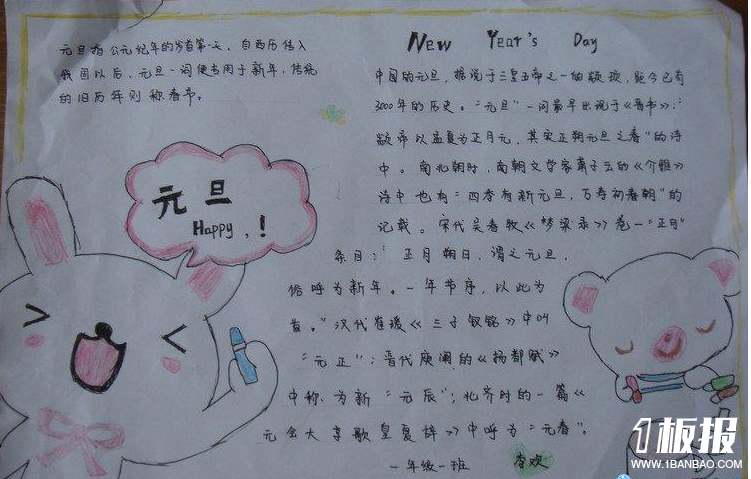 元旦指公元纪年的岁首第一天。自西历传入
我国以后，元旦一词便专用于新年，传统
的旧历年则称春节。
元旦
Happy,!
New Year's Day
中国的元旦，据说于三皇五帝之一的颛顼，距今已有
3000年的历史。"元旦"一词最早出现于《晋书》："
颛帝以孟夏为正月元，其实正朔元旦之春"的诗
中。南北朝时，南朝文学家萧子云的《介雅》
诗中也有"四季有新元旦，万寿初春朝"的
记载。宋代吴春牧《梦梁录》卷一"正月"
条目："正月朔日，谓之元旦，
俗呼为新年。一年节序，以此为
首。"汉代崔瑗《三子钗铭》中叫
"元正"；晋代庾阐的《扬都赋》
中称为新"元辰"；北齐时的一篇《
元会大享歌皇夏辞》中呼为"元春"。
一年级一班 李欢
1板报
WWW.1BANBAO.COM